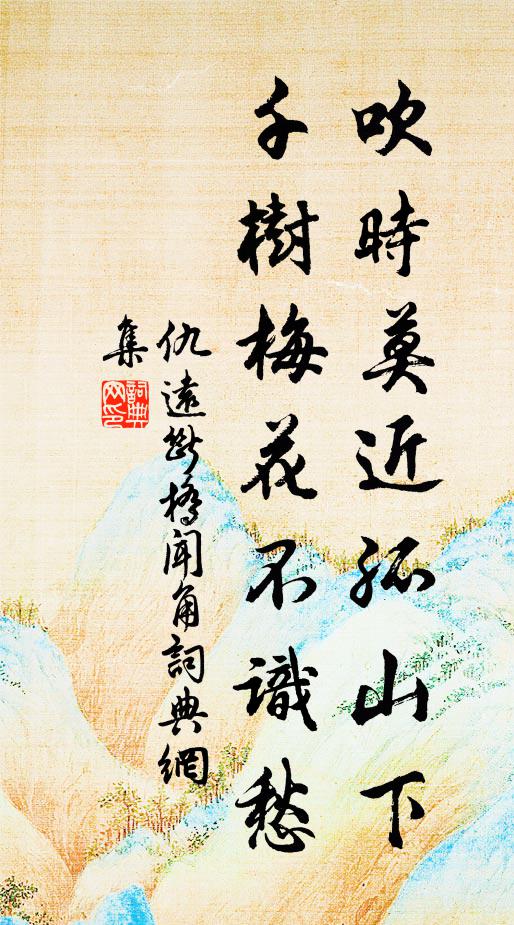 吹時莫近孤山下
千樹梅花不識愁
仇遠斷橋聞角詞典網
集
詞典
網印